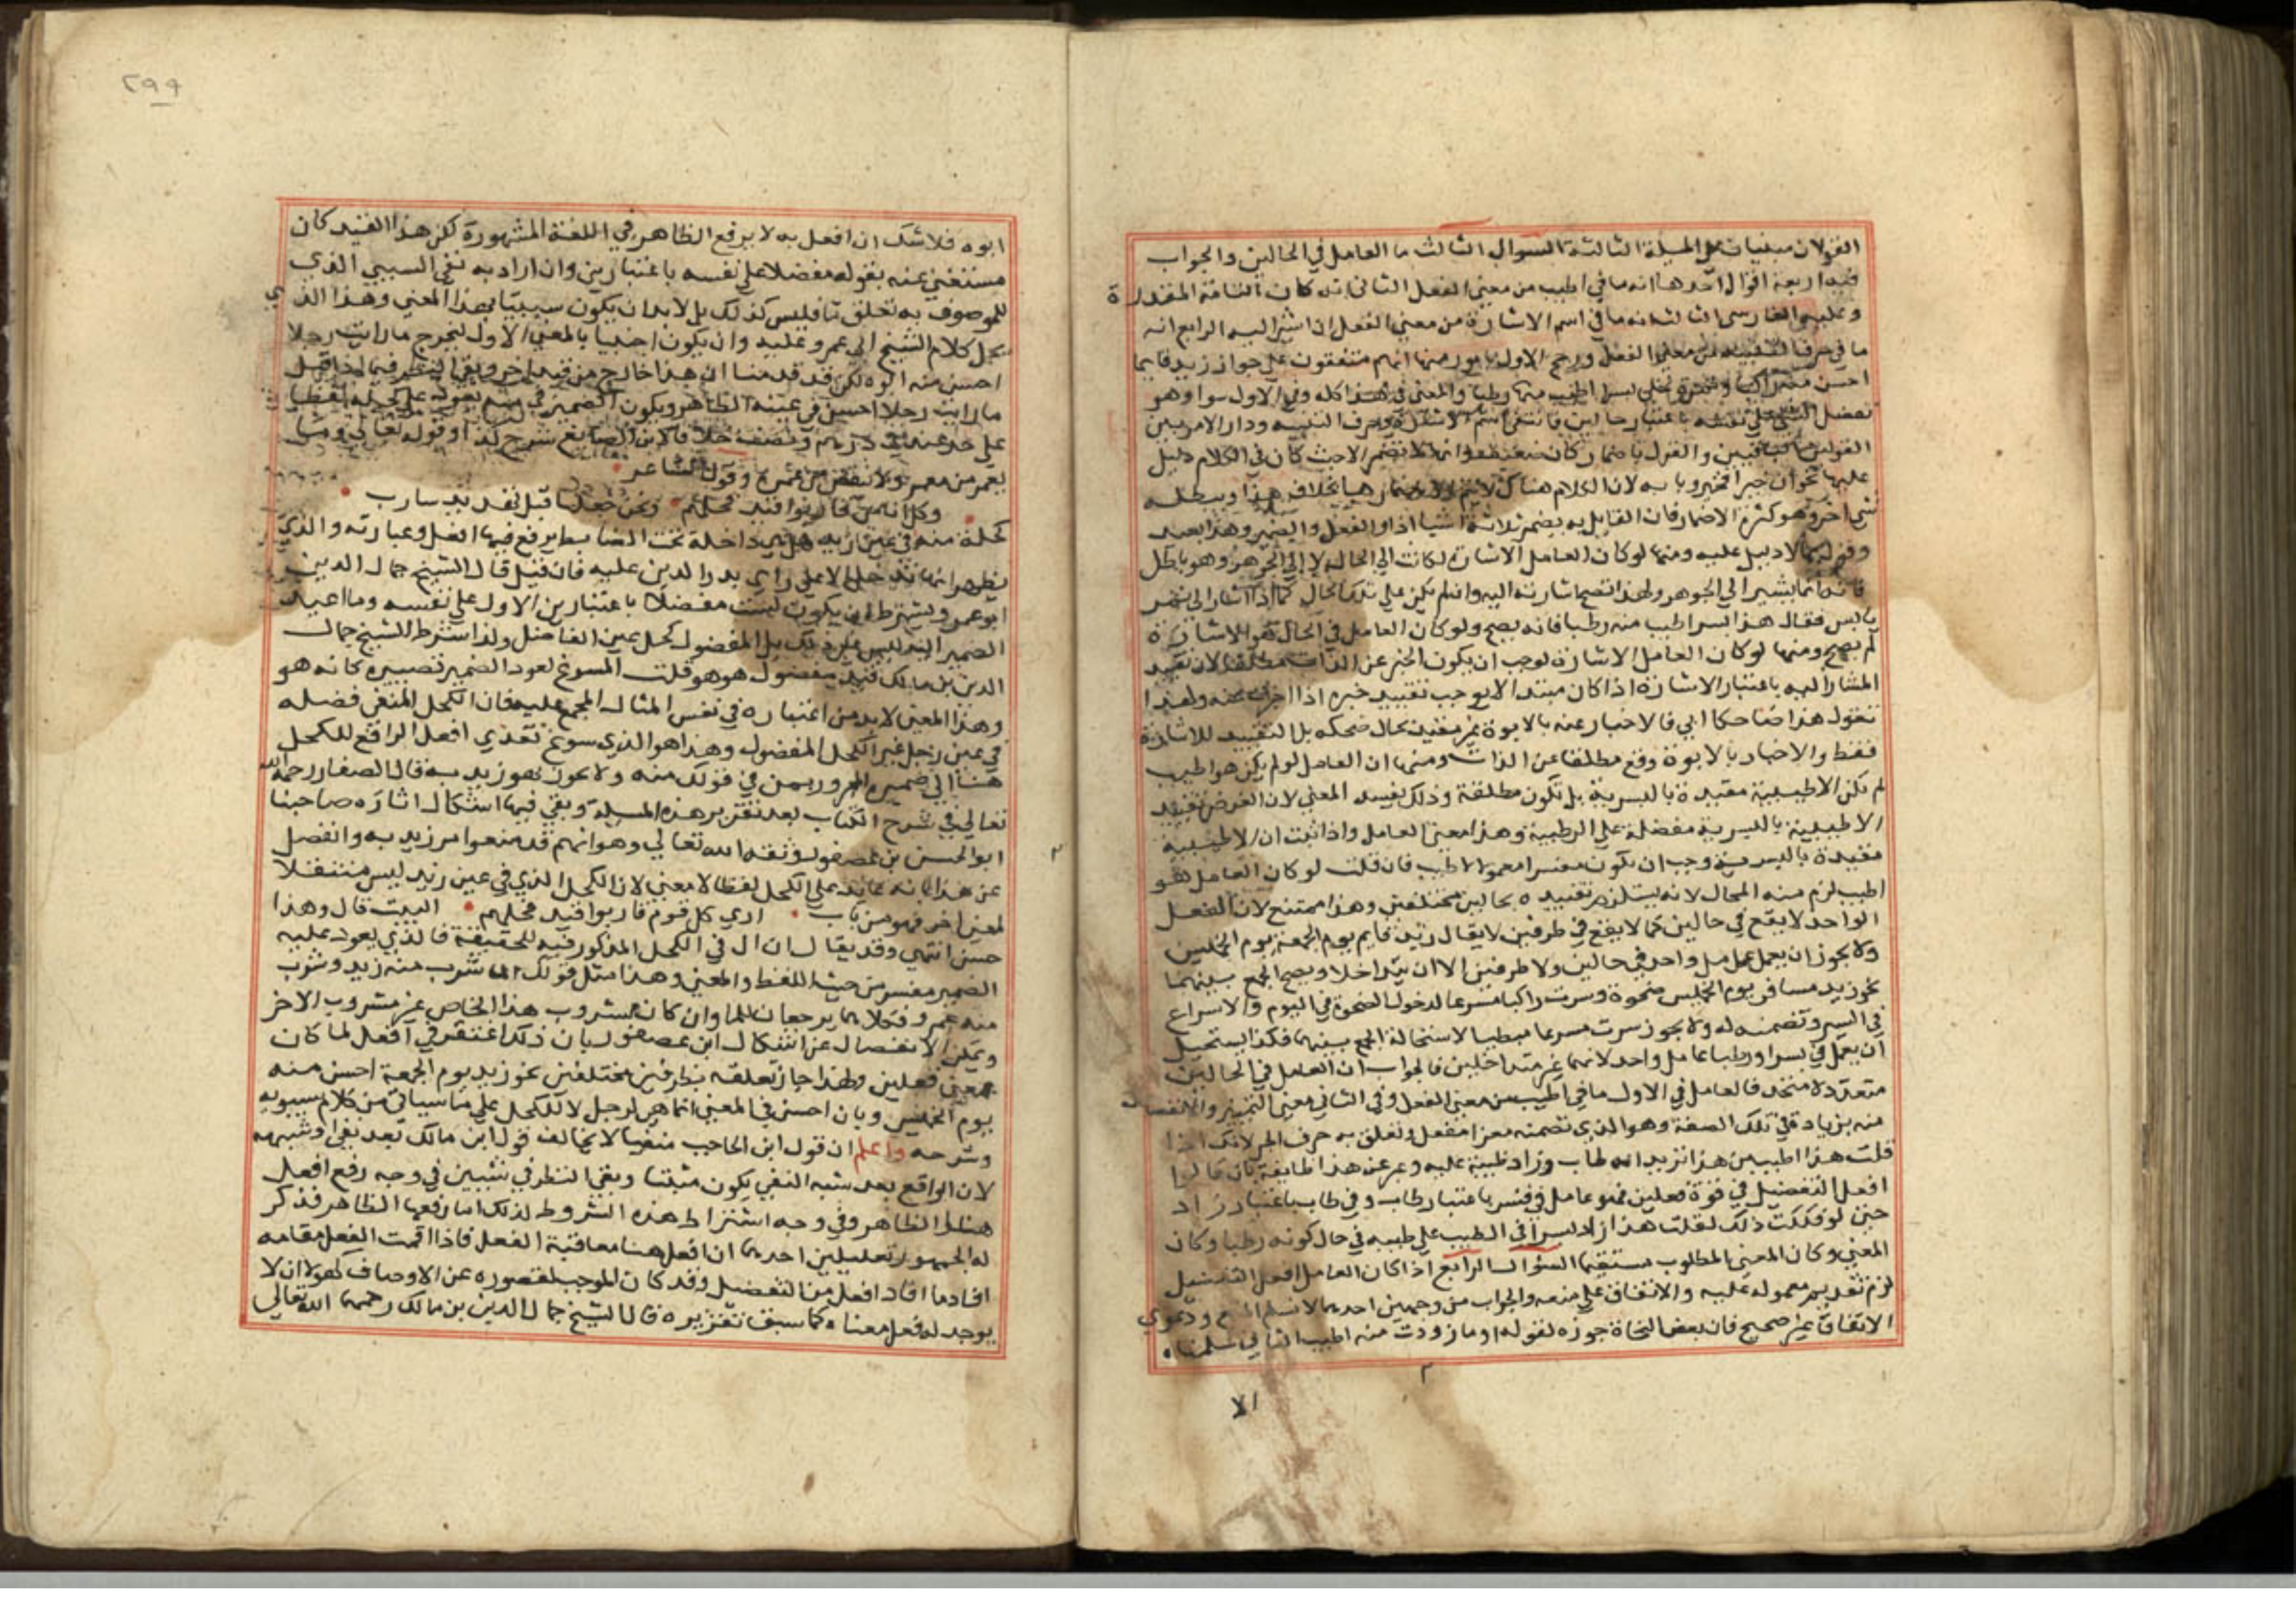 القولان مبنيان على المسلة الثالثة السوال الثالث ما العامل في الحالين والجواب
فيه اربعة اقوال احدها انه ما في اطيب من معنى الفعل الثاني انه كان التامة المقدرة
وعليه الفارسي الثالث انه ما في اسم الاشارة من معنى الفعل اي اشير اليه الرابع انه
ما في حرف التنبيه من معنى الفعل ورجح الاول بامور منها انهم متفقون على جواز زيد قايما
احسن منه راكبا وثمرة نخلي بسرا اطيب منها رطبا والمعنى في هذا كله وفي الاول سوا وهو
تفضيل الشي على نفسه باعتبار حالين فانتفى اسم الاشارة وحرف التنبيه ودار الامر بين
القولين الباقيين والقول باضمار كان ضعيف لانها لا تضمر الا حيث كان في الكلام دليل
عليها نحو ان خيرا فخير وبابه لان الكلام هناك لا يتم الا باضمارها بخلاف هذا ويبطله
شي اخر وهو كثرة الاضمار فان القايل به يضمر ثلاثة اشيا اذا والفعل والضمير وهذا بعيد
وقول بما لا دليل عليه ومنها لو كان العامل الاشارة لكانت الى الحال لا الى الجوهر وهو باطل
فانه انما يشير الى الجوهر ولهذا تصح اشارته اليه وان لم يكن على تلك الحال كما اذا اشار الى تمر
يابس فقال هذا بسرا اطيب منه رطبا فانه يصح ولو كان العامل في الحال هو الاشارة
لم يصح ومنها لو كان العامل الاشارة لوجب ان يكون الخبر عن الذات مطلقا لان تقييد
المشار اليه باعتبار الاشارة اذا كان مبتدا لا يوجب تقييد خبره اذا اخبرت عنه ولهذا
تقول هذا ضاحكا ابي فالاخبار عنه بالابوة غير مقيد بحال ضحكه بل التقييد للاشارة
فقط والاخبار بالابوة وقع مطلقا عن الذات ومنها ان العامل لو لم يكن هو اطيب
لم تكن الاطيبية مقيدة بالبسرية بل تكون مطلقة وذلك يفسد المعنى لان الغرض تقييد
الاطيبية بالبسرية مفضلة على الرطبية وهذا معنى العامل واذا ثبت ان الاطيبية
مقيدة بالبسرية وجب ان يكون مفسرا معمولا لاطيب فان قلت لو كان العامل هو
اطيب لزم منه المحال لانه يستلزم تقييده بحالين مختلفتين وهذا ممتنع لان الفعل
الواحد لا يقع في حالين كما لا يقع في ظرفين لا يقال زيد قايم يوم الجمعة يوم الخميس
ولا يجوز ان يعمل عامل واحد في حالين ولا ظرفين الا ان يتداخلا ويصح الجمع بينهما
نحو زيد مسافر يوم الخميس ضحوة وسرت راكبا مسرعا لدخول الضحوة في اليوم والاسراع
في السير وتضمنه له ولا يجوز سرت مسرعا مبطيا لاستحالة الجمع بينهما فكذا يستحيل
ان يعمل في بسرا ورطبا عامل واحد لانهما غير متداخلين فالجواب ان العامل في الحالين
متعدد لا متحد فالعامل في الاول ما في اطيب من معنى الفعل وفي الثاني معنى التمييز والانفصال
منه بزيادة في تلك الصفة وهو الذي تضمنه معنى افعل وتعلق به حرف الجر لانك اذا
قلت هذا اطيب من هذا تريد انه طاب وزاد طيبه عليه وعبر عن هذا طايفة بان قالوا
افعل التفضيل في قوة فعلين فهو عامل في بسر باعتبار طاب وفي طاب باعتبار زاد
حتى لو فككت ذلك لقلت هذا زاد بسرا في الطيب على طيبه في حال كونه رطبا وكان
المعنى وكان المعنى المطلوب مستقيما السؤال الرابع اذا كان العامل افعل التفضيل
لزم تقديم معموله عليه والاتفاق على منعه والجواب من وجهين احدهما لا نسلم المنع ودعوى
الاتفاق غير صحيح فان بعض النحاة جوزه لقوله او ما زودت منه اطيب الثاني سلمناه
الا
٢٩٩
ابوه فلا شك ان افعل به لا يرفع الظاهر في اللغة المشهورة لكن هذا القيد كان
مستغني عنه بقوله مفضلا على نفسه باعتبارين وان اراد به نفي السببي الذي
للموصوف به تعلق تا فليس كذلك بل لا بد ان يكون سببيا بهذا المعنى وهذا الذي
يحمل كلام الشيخ ابي عمرو عليه وان يكون اجنبيا بالمعنى الاول ليخرج ما رايت رجلا
احسن منه ابوه لكن قد قدمنا ان هذا خارج من قيد اخر وبقي النظر فيما اذا قيل
ما رايت رجلا احسن في عينه الظاهر ويكون الضمير في منه يعود على لفظا
على حد عندي درهم ونصفه خلافا لابن الصايغ شرح لذا وقوله تعالى وما
يعمر من معمر ولا ينقص من عمره وقول الشاعر
وكل اناس قاربوا قيد فحلهم ونحن خلعنا قيده فهو سارب
كحله منه في عين زيد هل هي داخلة تحت الضابط يرفع فيها افعل وعبارته والذي
يظهر انها تدخل الا على راي بدر الدين عليه فان قيل قال الشيخ جمال الدين
ابو عمرو ويشترط ان يكون لمسبب مفضلا باعتبارين الاول على نفسه وما اعيد
الضمير اليه ليس عين ذلك بل المفضول كحل بعين الفاضل ولذا اشترط الشيخ جمال
الدين بن مالك قيد مفضول هو هو قلت المسوغ لعود الضمير تصييره كانه هو
وهذا المعنى لا بد من اعتباره في نفس المثال المجمع عليه فان الكحل المنفي فضله
في عين رجل غير الكحل المفضول وهذا هو الذي سوغ تعدي افعل الرافع للكحل
هنا الى ضميره المجرور بمن في قولك منه ولا يجوز هو زيد به قال الصفار رحمه الله
تعالى في شرح الكتاب بعد تقرير هذه المسلة وبقي فيها اشكال اثاره صاحبنا
ابو الحسن بن عصفور وفقه الله تعالى وهو انهم قد منعوا مر زيد به وانفصل
عن هذا بانه عايد على الكحل لفظا لا معنى لان الكحل الذي في عين زيد ليس منتقلا
لعين اخر فهو من باب ارى كل قوم قاربوا قيد فحلهم البيت قال وهذا
حسن انتهى وقد يقال ان ال في الكحل المذكور فيه للحقيقة فالذي يعود عليه
الضمير مفسر من حيث اللفظ والمعنى وهذا مثل قولك الما شرب منه زيد وشرب
منه عمرو فكلاهما يرجعان للما وان كان مشروب هذا الخاص غير مشروب الاخر
ويمكن الانفصال عن اشكال ابن عصفور بان ذلك اغتفر في افعل لما كان
بمعنى فعلين ولهذا جاز تعلقه بظرفين مختلفين نحو زيد يوم الجمعة احسن منه
يوم الخميس وبان احسن في المعنى انما هي لرجل لا للكحل على ما سياتي من كلام سيبويه
وشرحه واعلم ان قول ابن الحاجب منفيا لا يخالف قول ابن مالك بعد نفي او شبهه
لان الواقع بعد شبه النفي يكون مثبتا وبقي النظر في شيين في وجه رفع افعل
هنا الظاهر وفي وجه اشتراط هذه الشروط لذلك اما رفعها الظاهر فذكر
له الجمهور تعليلين احدهما ان افعل هنا معاقبة الفعل فاذا اقمت الفعل مقامه
افاد ما افاد افعل من التفضيل وقد كان الموجب لقصوره عن الاوصاف كهولا ان لا
يوجد له فعل معناه كما سبق تقريره قال الشيخ جمال الدين بن مالك رحمهما الله تعالى